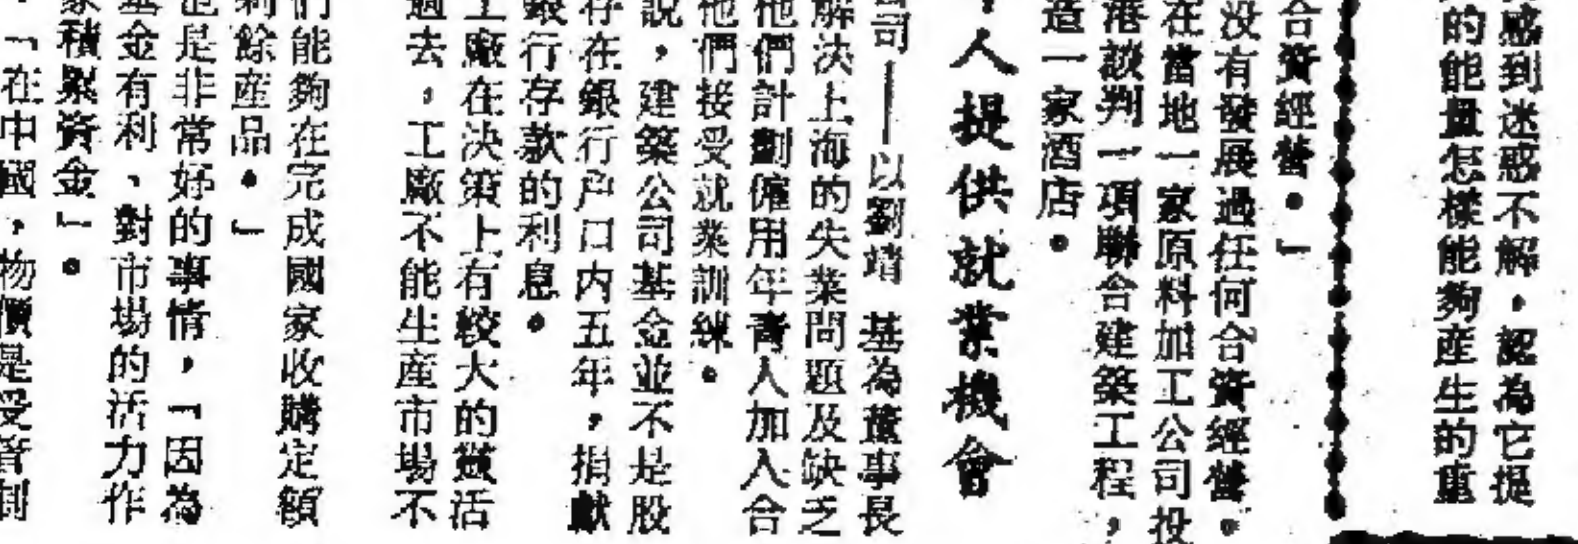 感到迷惑不解，認為它提
的能量怎樣能夠產生的重
合資經營。」
没有發展過任何合資經營。
在當地一家原料加工公司投
港談判一項聯合建築工程，
造一家酒店。
人提供就業機會
司——以劉靖基為董事長
解決上海的失業問題及缺乏
他們計劃僱用年青人加入合
他們接受就業訓練。
說，建築公司基金並不是股
存在銀行户口内五年，捐獻
銀行存款的利息。
工廠在決策上有較大的靈活
過去，工廠不能生產市場不
們能夠在完成國家收購定額
剩餘產品。」
也是非常好的事情，「因為
基金有利、對市場的活力作
家積累資金」。
「在中國，物價是受管制